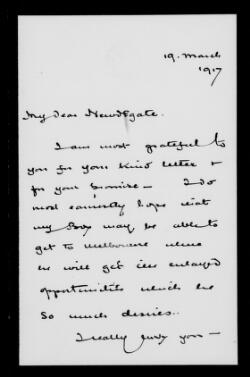 19. March
1917
My dear Newdegate.
I am most grateful to
you for your kind letter &
for your promise — I do
most earnestly hope that
my Boy may be able to
get to Melbourne where
he will get the enlarged
opportunities which he
so much desires..
I really envy you —